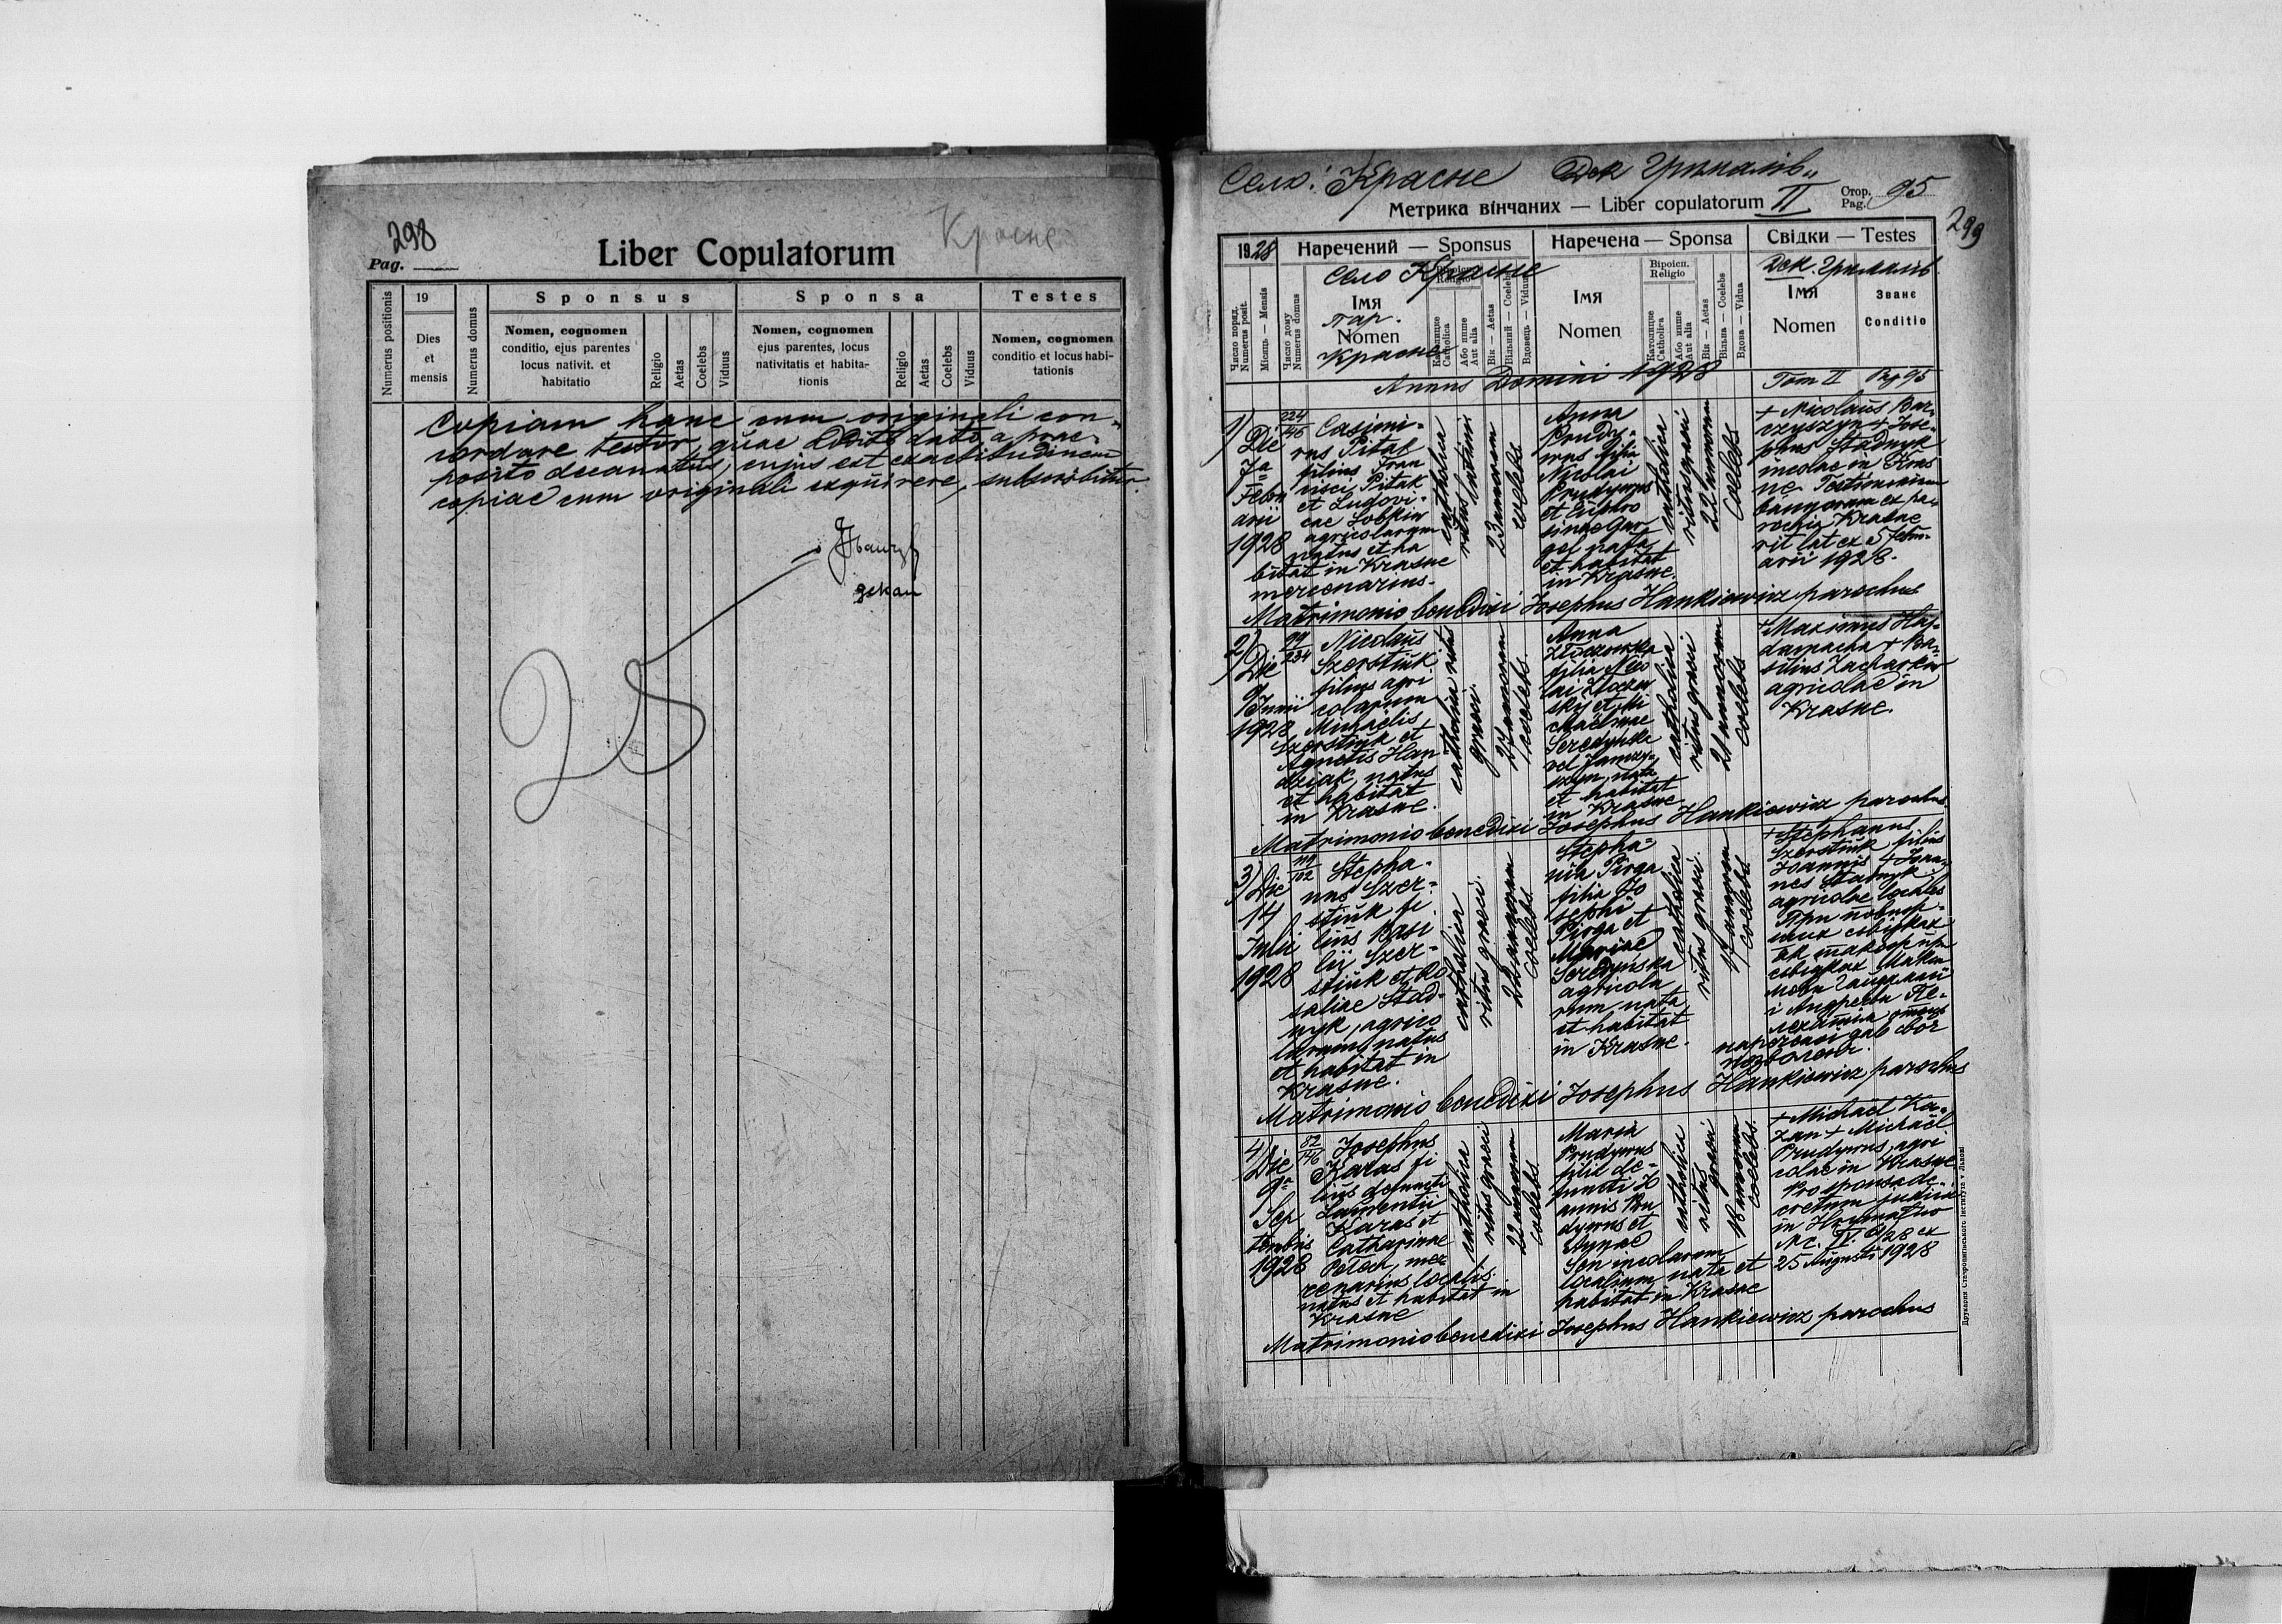 298
Pag.
Liber Copulatorum
Красне
Numerus positionis
19
Dies
et
mensis
Numerus domus
Sponsus
Nomen, cognomen
conditio, ejus parentes
locus nativit. et
habitatio
Religio
Aetas
Coelebs
Viduus
Sponsa
Nomen, cognomen
ejus parentes, locus
nativitatis et habita-
tionis
Religio
Aetas
Coelebs
Viduus
Testes
Nomen, cognomen
conditio et locus habi-
tationis
Copiam hanc cum originali con-
cordare testor, quae data a prae-
posito decanatus, cujus est exactitudinem
copiae cum originali exquirere, subscribitur.
декан
Село: Красне Дек Грималів
Метрика вінчаних — Liber copulatorum II
Стор. 95
Pag.
299
1928
Наречений — Sponsus
Наречена — Sponsa
Свідки — Testes
Село Красне
Дек. Грималів
Число поряд.
Numerus posit.
Місяць — Mensis
Число дому
Numerus domus
Імя
пар.
Nomen
Красне
Віроісп.
Religio
Католицке
Catholica
Або инше
Aut alia
Вік — Aetas
Вільний — Coelebs
Вдовець — Viduus
Імя
Nomen
Віроісп.
Religio
Католицке
Catholica
Або инше
Aut alia
Вік — Aetas
Вільна — Coelebs
Вдова — Vidua
Імя
Nomen
Званє
Conditio
Annus Domini 1928
Tom II Pag 95
1)
Die
7a
Febru
arii
1928
224
146
Casimi-
rus Pitak
filius Fran
cisci Pitak
et Ludovi-
cae Sobków
agricolarum
natus et ha
bitat in Krasne
mercenarius.
catholica
ritus latini
23 annorum
coelebs
Anna
Prudy-
wus filia
Nicolai
Prudywus
et Euphro
sinae
nata
et habitat
in Krasne.
catholica
ritus graeci
22 annorum
Coelebs
+ Nicolaus Bar-
czyszyn + Jose-
phus Stadnyk
incolae in Kras
ne Testimonium
bannorum ex pa-
rochia Krasne
rit lat ex 5 Febru-
arii 1928.
Matrimonio benedixi Josephus Hankiewicz parochus
2)
Die
9
Junii
1928
99
234
Nicolaus
Szerstiuk
filius agri
colarum
Michaelis
Szerstiuk et
Agnetis Han
dziak, natus
et habitat
in Krasne.
catholica ritus
graeci.
27 annorum
coelebs.
Anna
Złoczowska
filia Nico
lai Złoczow
sky et Mi
chaelinae
Seredyńska
vel
nata
et habitat
in Krasne
catholica
ritus graeci
21 annorum
coelebs
+ Maximus Haj-
damacha + Ba-
silius Zacharków
agricolae in
Krasne.
Matrimonio benedixi Josephus Hankiewicz parochus
3)
Die
14
Julii
1928
119
102
Stepha-
nus Szer-
stiuk fi
lius Basi
lii Szer-
stiuk et Ro
saliae Stad-
nyk, agrico
larum, natus
et habitat in
Krasne.
catholica
ritus graeci.
22 annorum
coelebs.
Stepha-
nia Piroga
filia Jo
sephi
Piroga et
Mariae
Seredyńska
agricola
rum nata
et habitat
in Krasne.
catholica
ritus graeci.
17 annorum
coelebs
+ Stephanus
Szerstiuk filius
Joannis + Joan-
nes Stadnyk
agricolae locales
При
свідках
як також при
свідках Макси
і Андреєви
нареченої дав свої
позволенє.
Matrimonio benedixi Josephus Hankiewicz parochus
4)
Die
9a
Sep
tembris
1928
52
146
Josephus
Karas fi
lius defuncti
Laurentii
Karas et
Catharinae
Petech, mer
cenarius localis
natus et habitat in
Krasne
catholica
ritus graeci
22 annorum
coelebs
Maria
Prudywus
filia de-
functi Jo
annis Pru
dywus et
Annae
Son incolarum
localium, nata et
habitat in Krasne
catholica
ritus graeci
18 annorum
coelebs.
+ Michael Ka-
zan + Michael
Prudywus, agri
colae in Krasne
Pro sponsa de-
cretum judicii
in Hrymałów
Nc. IV. 9/28 ex
25 Augusti 1928
Matrimonio benedixi Josephus Hankiewicz parochus
Друкарня Ставропигійського Інститута у Львові